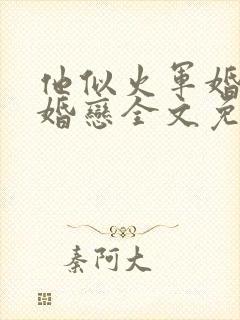 他似火軍婚
婚戀全文免
秦阿大